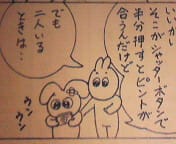 いいかい
そこがシャッターボタンで
半分押すとピントが
合うんだけど
でも
二人いる
ときは…
ウン
ウン